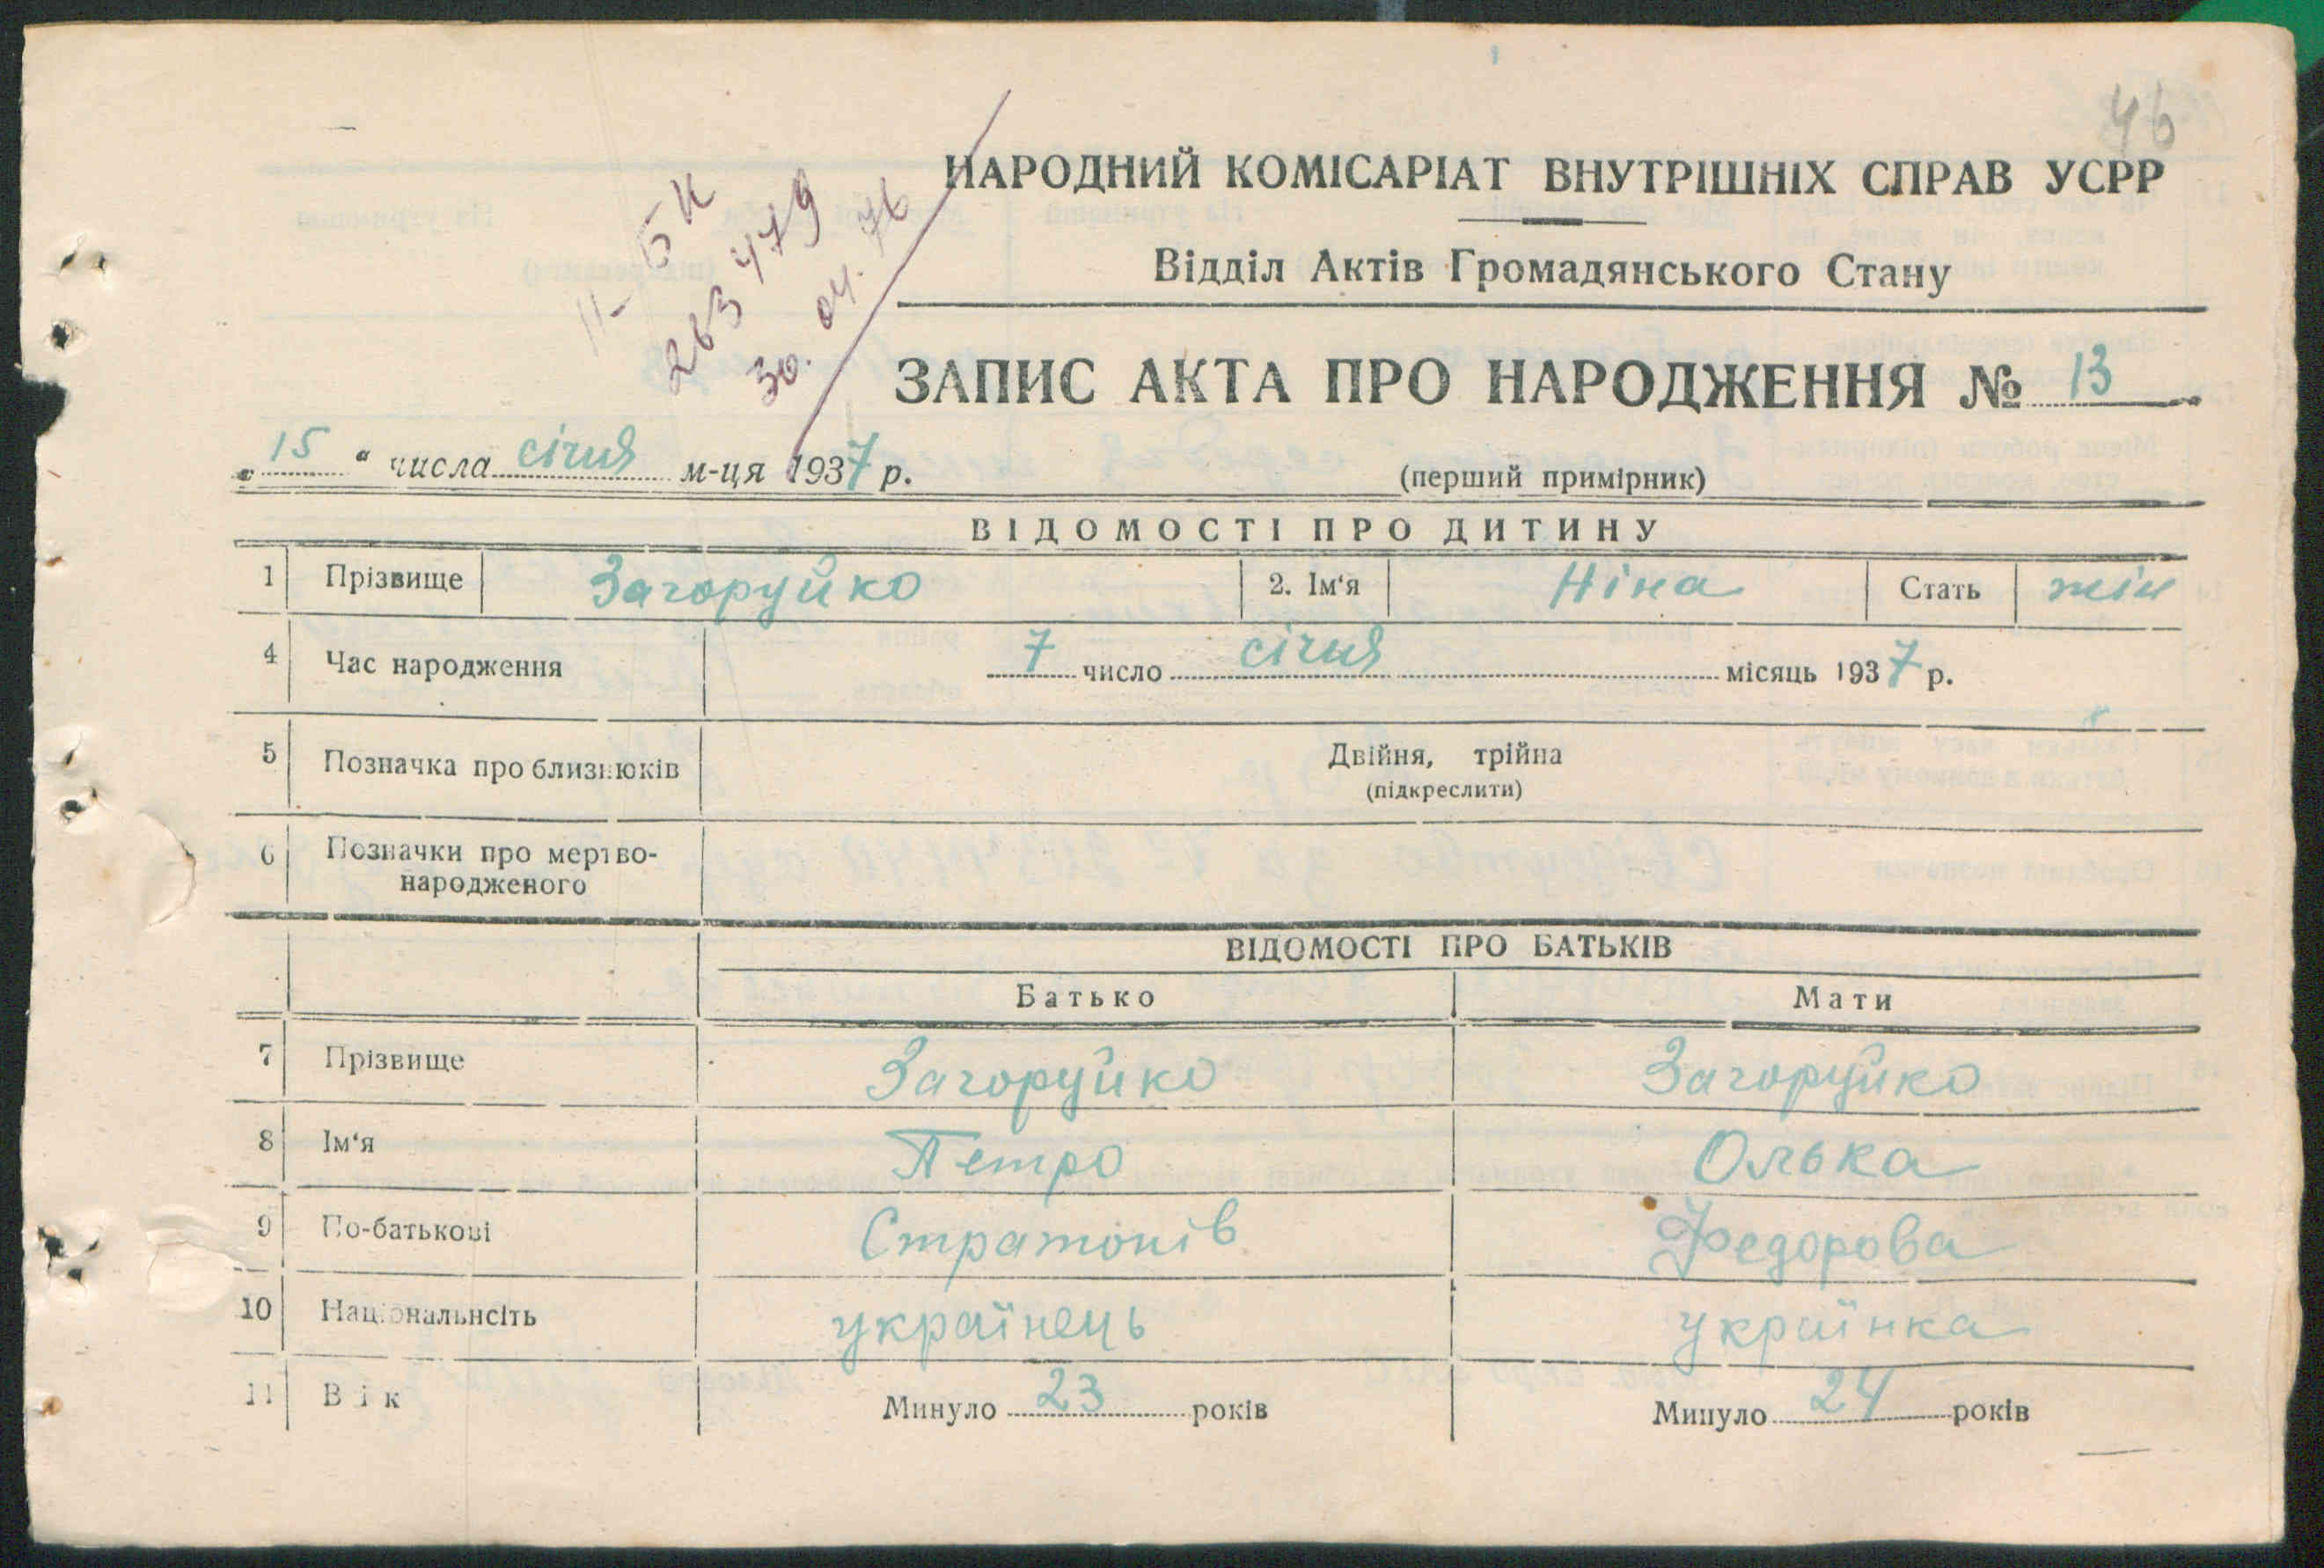 46
НАРОДНИЙ КОМІСАРІАТ ВНУТРІШНІХ СПРАВ УСРР
Відділ Актів Громадянського Стану
II-БК
263479
30.04.76
ЗАПИС АКТА ПРО НАРОДЖЕННЯ № 13
„15“ числа січня м-ця 1937 р.
(перший примірник)
ВІДОМОСТІ ПРО ДИТИНУ
1 Прізвище Загоруйко 2. Ім‘я Ніна Стать жін
4 Час народження 7 число січня місяць 1937 р.
5 Позначка про близнюків Двійня, трійна
(підкреслити)
6 Позначки про мертво-
народженого
ВІДОМОСТІ ПРО БАТЬКІВ
Батько Мати
7 Прізвище Загоруйко Загоруйко
8 Ім‘я Петро Олька
9 По-батькові Стратонів Федорова
10 Національнсіть українець українка
11 Вік Минуло 23 років Минуло 24 років